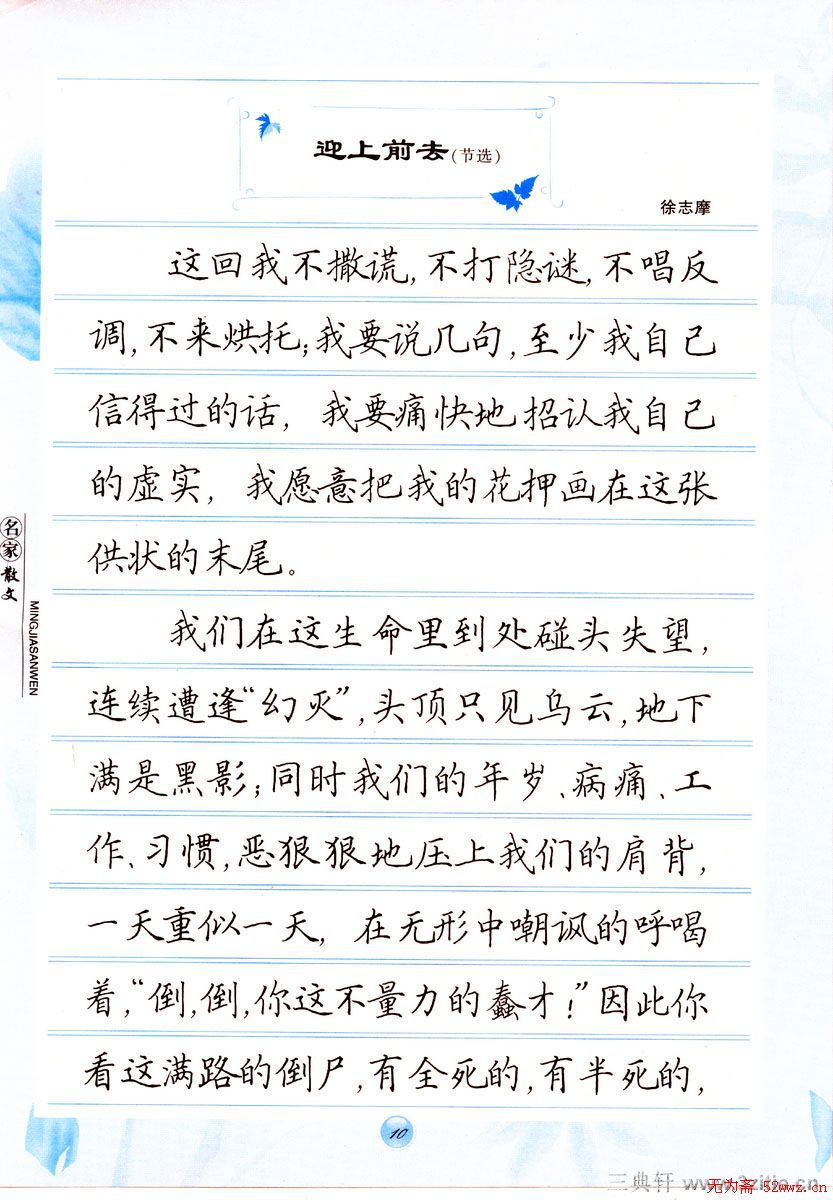 迎上前去(节选)
徐志摩
这回我不撒谎,不打隐谜,不唱反
调,不来烘托;我要说几句,至少我自己
信得过的话,我要痛快地招认我自己
的虚实,我愿意把我的花押画在这张
供状的末尾。
我们在这生命里到处碰头失望,
连续遭逢“幻灭”,头顶只见乌云,地下
满是黑影;同时我们的年岁、病痛、工
作、习惯,恶狠狠地压上我们的肩背,
一天重似一天,在无形中嘲讽的呼喝
着,“倒,倒,你这不量力的蠢才!”因此你
看这满路的倒尸,有全死的,有半死的,
名家散文
MINGJIASANWEN
10
三典轩
无为斋 52wwz.cn